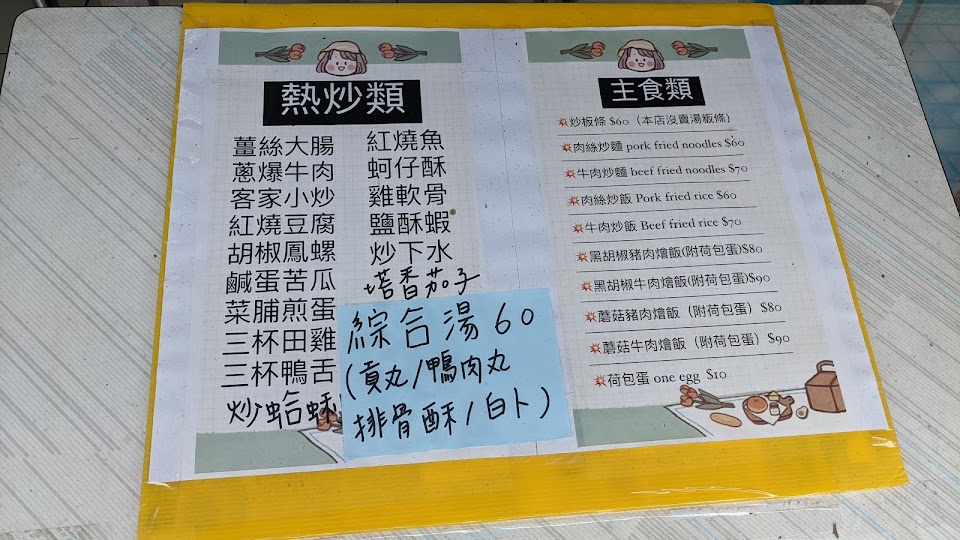 熱炒類
薑絲大腸
蔥爆牛肉
客家小炒
紅燒豆腐
胡椒鳳螺
鹹蛋苦瓜
菜脯煎蛋
三杯田雞
三杯鴨舌
炒蛤蠣
紅燒魚
蚵仔酥
雞軟骨
鹽酥蝦
炒下水
塔香茄子
綜合湯60
(貢丸/鴨肉丸
排骨酥/白卜)
主食類
炒板條 $60（本店沒賣湯粄條）
肉絲炒麵 pork fried noodles $60
牛肉炒麵 beef fried noodles $70
肉絲炒飯 Pork fried rice $60
牛肉炒飯 Beef fried rice $70
黑胡椒豬肉燴飯(附荷包蛋)$80
黑胡椒牛肉燴飯(附荷包蛋)$90
蘑菇豬肉燴飯（附荷包蛋）$80
蘑菇牛肉燴飯（附荷包蛋）$90
荷包蛋 one egg $10